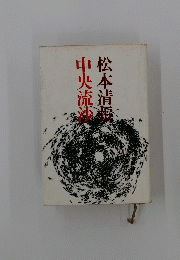 松本清張
中央流沙